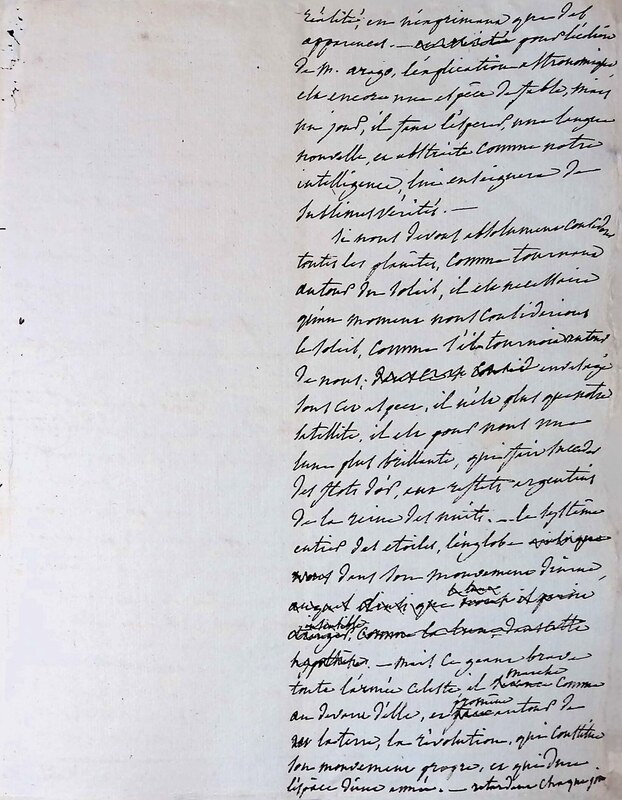 réalité, en n'exprimant que des
apparences. — pour l'édition
de m. arago, l'explication astronomique
est encore une espèce de fable, mais
un jour, il faut l'espérer, une langue
nouvelle, et abstraite comme notre
intelligence, lui enseignera de
sublimes vérités. —
si nous devons absolument considérer
toutes les planètes, comme tournant
autour du soleil, il est nécessaire
qu'un moment nous considérions
le soleil, comme s'il tournoit autour
de nous. envisagé
sous cet aspect, il n'est plus que notre
satellite, il est pour nous une
lune plus brillante, qui fait succéder
des flots d'or, aux reflets argentins
de la reine des nuits. — le système
entier des etoiles, l'englobe
dans son mouvement diurne,
il
comme la lune, dans cette
hypothèse. — mais ce géant brave
toute l'armée céleste, il marche comme
au devant d'elle, et autour de
la terre, la révolution, qui constitue
son mouvement propre, et qui dure
l'espace d'une année. — chaque jour